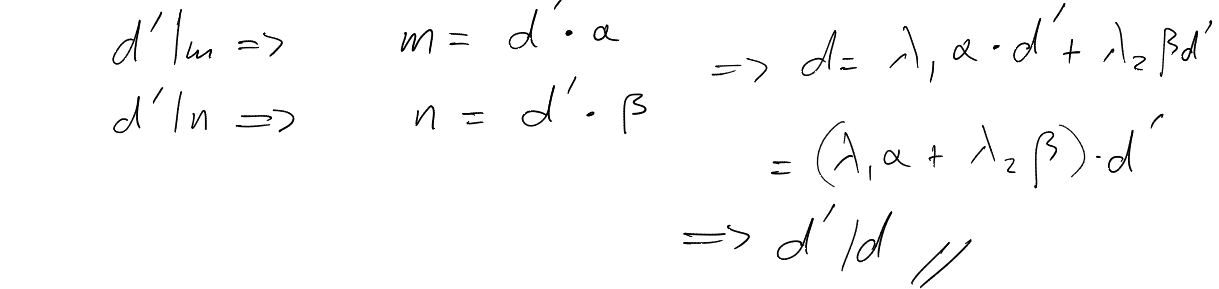 d'|m => m = d' · α
d'|n => n = d' · β
=> d = λ₁ α · d' + λ₂ β d'
= (λ₁ α + λ₂ β) · d'
=> d'/d //